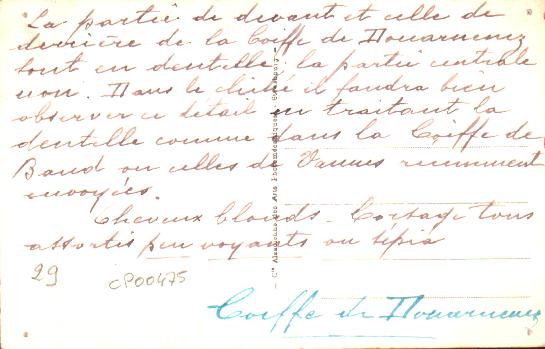 La partie de devant et celle de
derrière de la Coiffe de Douarnenez
sont en dentelle, la partie centrale
non. Dans le cliché il faudra bien
observer ce détail en traitant la
dentelle comme dans la Coiffe de
Baud ou celles de Vannes récemment
envoyées.
Cheveux blonds - Corsage tons
assortis peu voyants ou sépia
29 CP00475
Coiffe de Douarnenez
Cie Alsacienne des Arts Photomécaniques, Strasbourg